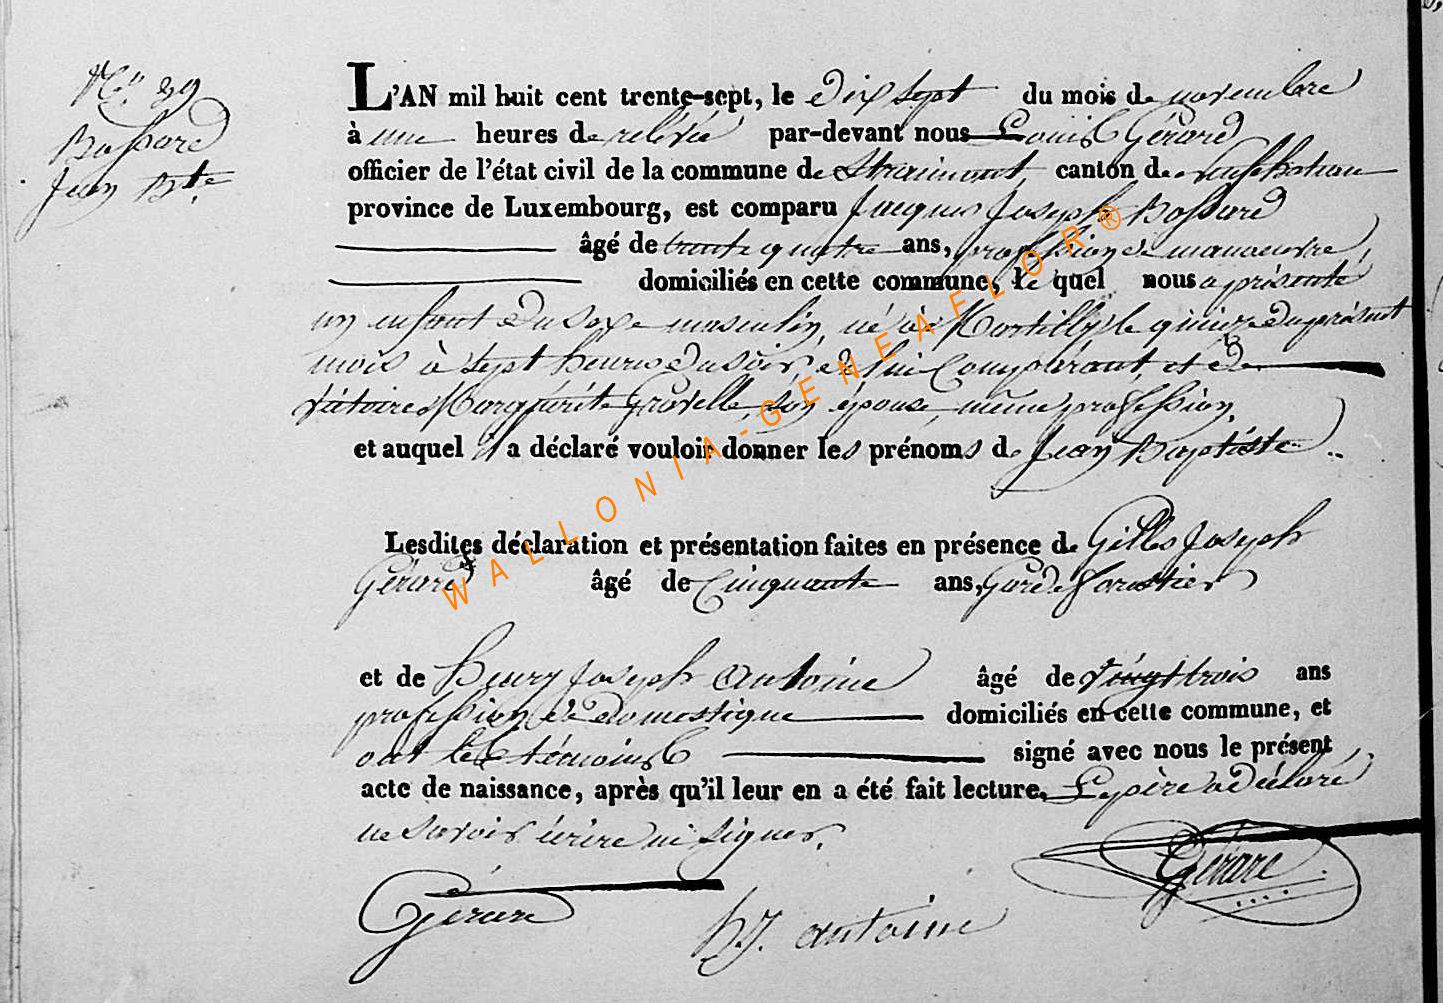 N.° 39
Bossard
Jean Bte.
L'AN mil huit cent trente-sept, le dix sept du mois de novembre
à une heures de relevée par-devant nous Louis Gérard
officier de l'état civil de la commune de Straimont, canton de neufchateau
province de Luxembourg, est comparu Jacques Joseph Bossard
âgé de trente quatre ans, profession de manoeuvre,
domiciliés en cette commune, le quel nous a présenté
un enfant du sexe masculin, né à Martilly le quinze du présent
mois à sept heures du soir, de lui Comparant, et de
Victoire Marguerite Gravelle, son épouse, même profession,
et auquel il a déclaré vouloir donner les prénoms de Jean Baptiste
Lesdites déclaration et présentation faites en présence de Gilles Joseph
Gérard âgé de Cinquante ans, Garde forestier
et de henry joseph antoine âgé de vingt trois ans
profession de domestique domiciliés en cette commune, et
ont les témoins signé avec nous le présent
acte de naissance, après qu'il leur en a été fait lecture. Le père a déclaré
ne savoir écrire ni signer.
Gérard
Gérard
h J. antoine
WALLONIA-GENEAFLOR®